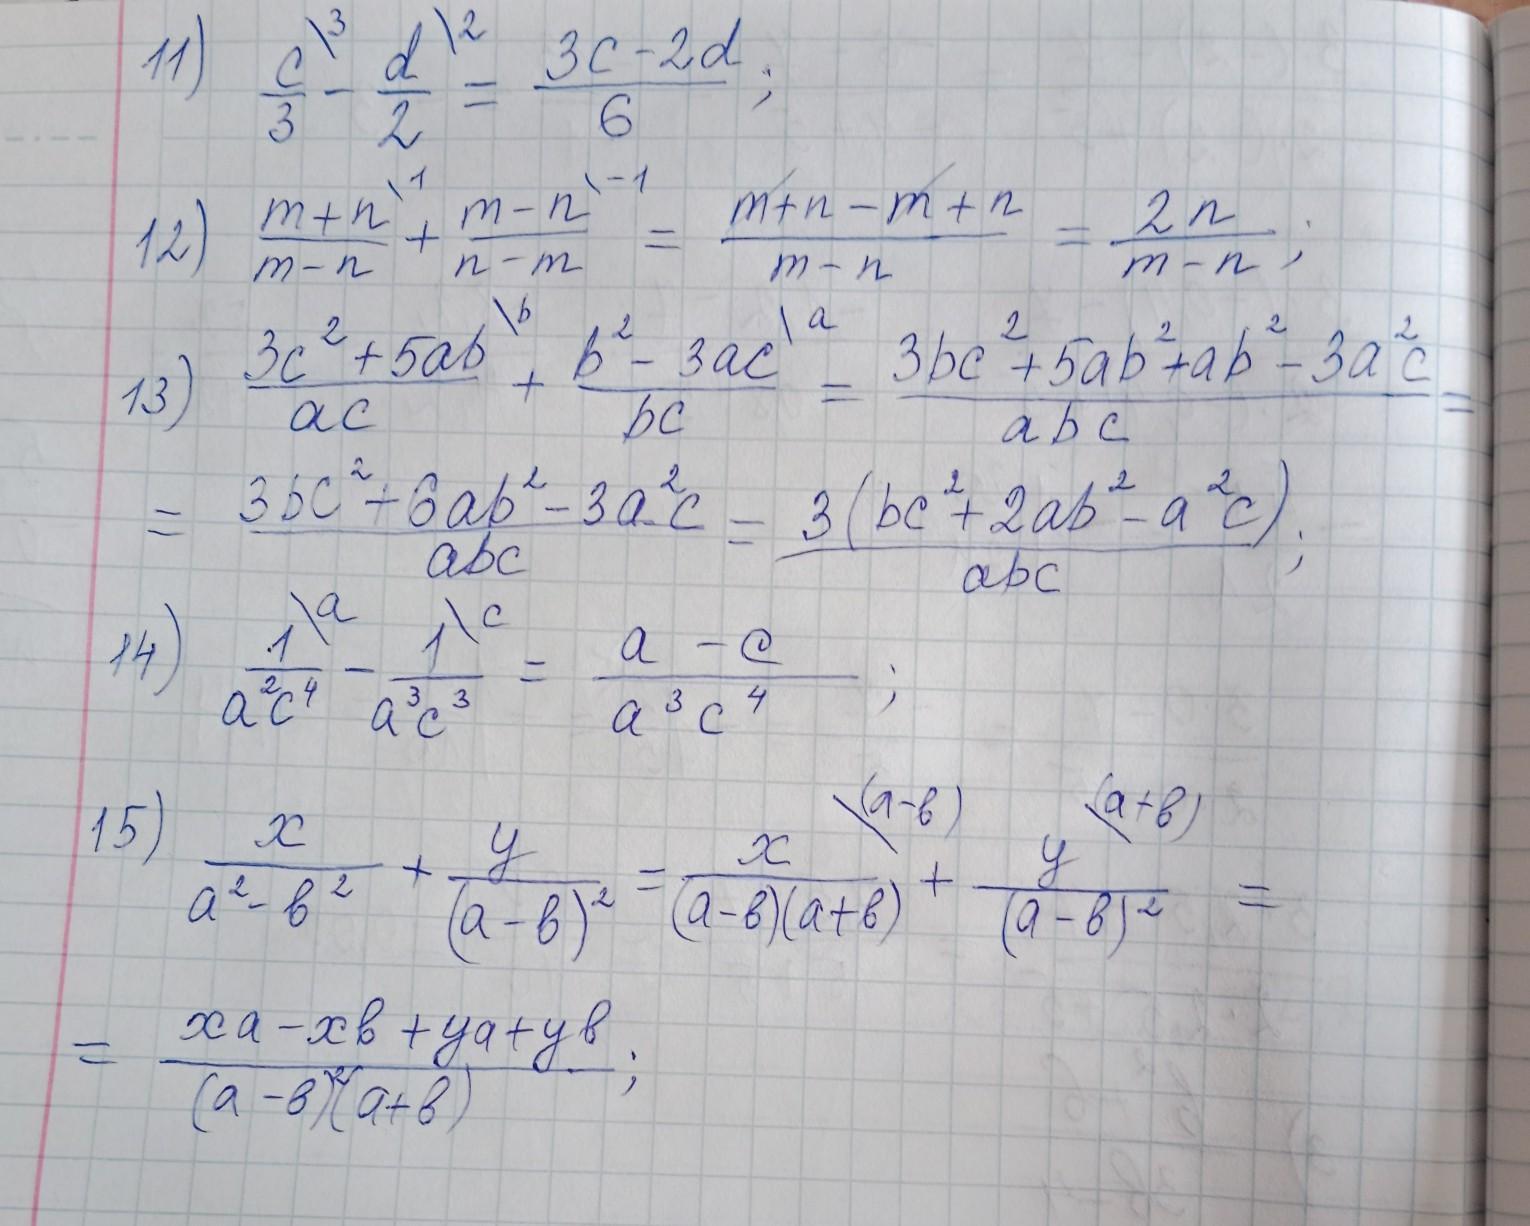 11) c/3 \3 - d/2 \2 = (3c-2d)/6;
12) (m+n)/(m-n) \1 + (m-n)/(n-m) \-1 = (m+n-m+n)/(m-n) = 2n/(m-n);
13) (3c²+5ab)/(ac) \b + (b²-3ac)/(bc) \a = (3bc²+5ab²+ab²-3a²c)/(abc) =
= (3bc²+6ab²-3a²c)/(abc) = 3(bc²+2ab²-a²c)/(abc);
14) 1/(a²c⁴) \a - 1/(a³c³) \c = (a-c)/(a³c⁴);
15) x/(a²-в²) + y/(a-в)² = x/((a-в)(a+в)) \(a-в) + y/(a-в)² \(a+в) =
= (xa-xв+ya+yв)/((a-в)²(a+в));